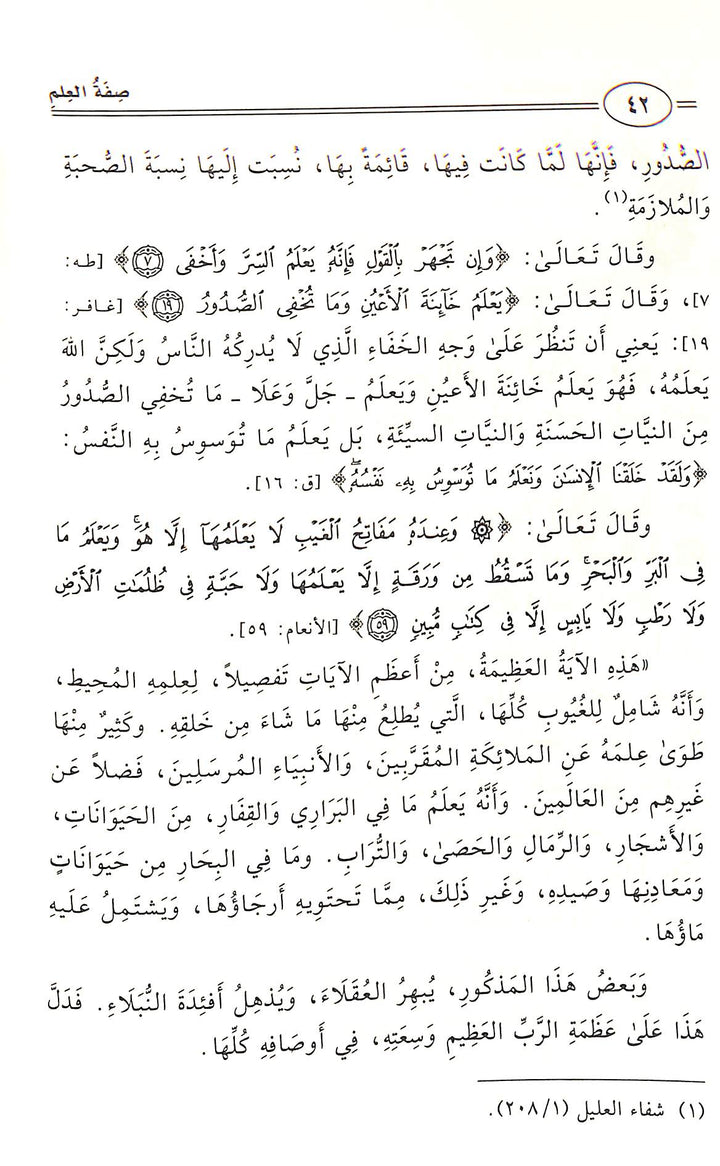 ٤٢
صِفَةُ العِلمِ
الصُّدُورِ، فَإِنَّهَا لَمَّا كَانَت فِيهَا، قَائِمَةً بِهَا، نُسِبَت إِلَيهَا نِسبَةَ الصُّحبَةِ
وَالمُلازَمَةِ(١).
وقَالَ تَعَالَىٰ: ﴿وَإِن تَجۡهَرۡ بِٱلۡقَوۡلِ فَإِنَّهُۥ يَعۡلَمُ ٱلسِّرَّ وَأَخۡفَى ٧﴾ [طه:
٧]، وَقَالَ تَعَالَىٰ: ﴿يَعۡلَمُ خَآئِنَةَ ٱلۡأَعۡيُنِ وَمَا تُخۡفِي ٱلصُّدُورُ ١٩﴾ [غافر:
١٩]: يَعنِي أَن تَنظُرَ عَلَىٰ وَجهِ الخَفَاءِ الَّذِي لَا يُدرِكُهُ النَّاسُ وَلَكِنَّ اللهَ
يَعلَمُهُ، فَهُوَ يَعلَمُ خَائِنَةَ الأَعيُنِ وَيَعلَمُ ـ جَلَّ وَعَلَا ـ مَا تُخفِي الصُّدُورُ
مِنَ النيَّاتِ الحَسَنَةِ وَالنيَّاتِ السيِّئَةِ، بَل يَعلَمُ مَا تُوَسوِسُ بِهِ النَّفسُ:
﴿وَلَقَدۡ خَلَقۡنَا ٱلۡإِنسَٰنَ وَنَعۡلَمُ مَا تُوَسۡوِسُ بِهِۦ نَفۡسُهُۥۖ﴾ [ق: ١٦].
وقَالَ تَعَالَىٰ: ﴿۞ وَعِندَهُۥ مَفَاتِحُ ٱلۡغَيۡبِ لَا يَعۡلَمُهَآ إِلَّا هُوَۚ وَيَعۡلَمُ مَا
فِي ٱلۡبَرِّ وَٱلۡبَحۡرِۚ وَمَا تَسۡقُطُ مِن وَرَقَةٍ إِلَّا يَعۡلَمُهَا وَلَا حَبَّةٖ فِي ظُلُمَٰتِ ٱلۡأَرۡضِ
وَلَا رَطۡبٖ وَلَا يَابِسٍ إِلَّا فِي كِتَٰبٖ مُّبِينٖ ٥٩﴾ [الأنعام: ٥٩].
«هَذِهِ الآيَةُ العَظِيمَةُ، مِنْ أَعظَمِ الآيَاتِ تَفصِيلاً، لِعِلمِهِ المُحِيطِ،
وَأَنَّهُ شَامِلٌ لِلغُيُوبِ كُلِّهَا، الَّتي يُطلِعُ مِنْهَا مَا شَاءَ مِن خَلقِهِ. وكَثِيرٌ مِنْهَا
طَوَىٰ عِلمَهُ عَنِ المَلائِكَةِ المُقَرَّبِينَ، وَالأَنبِيَاءِ المُرسَلِينَ، فَضلاً عَن
غَيرِهِم مِنَ العَالَمِينَ. وَأَنَّهُ يَعلَمُ مَا فِي البَرَارِي وَالقِفَارِ، مِنَ الحَيَوَانَاتِ،
وَالأَشجَارِ، وَالرِّمَالِ وَالحَصَىٰ، وَالتُّرَابِ. ومَا فِي البِحَارِ مِن حَيَوَانَاتٍ
وَمَعَادِنِهَا وَصَيدِهِ، وَغَيرِ ذَلِكَ، مِمَّا تَحتَوِيهِ أَرجَاؤُهَا، وَيَشتَمِلُ عَلَيهِ
مَاؤُهَا.
وَبَعضُ هَذَا المَذكُورِ، يُبهِرُ العُقَلَاءَ، وَيُذهِلُ أَفئِدَةَ النُّبَلَاءِ. فَدَلَّ
هَذَا عَلَىٰ عَظَمَةِ الرَّبِّ العَظِيمِ وَسِعَتِهِ، فِي أَوصَافِهِ كُلِّهَا.
(١) شفاء العليل (١/ ٢٠٨).